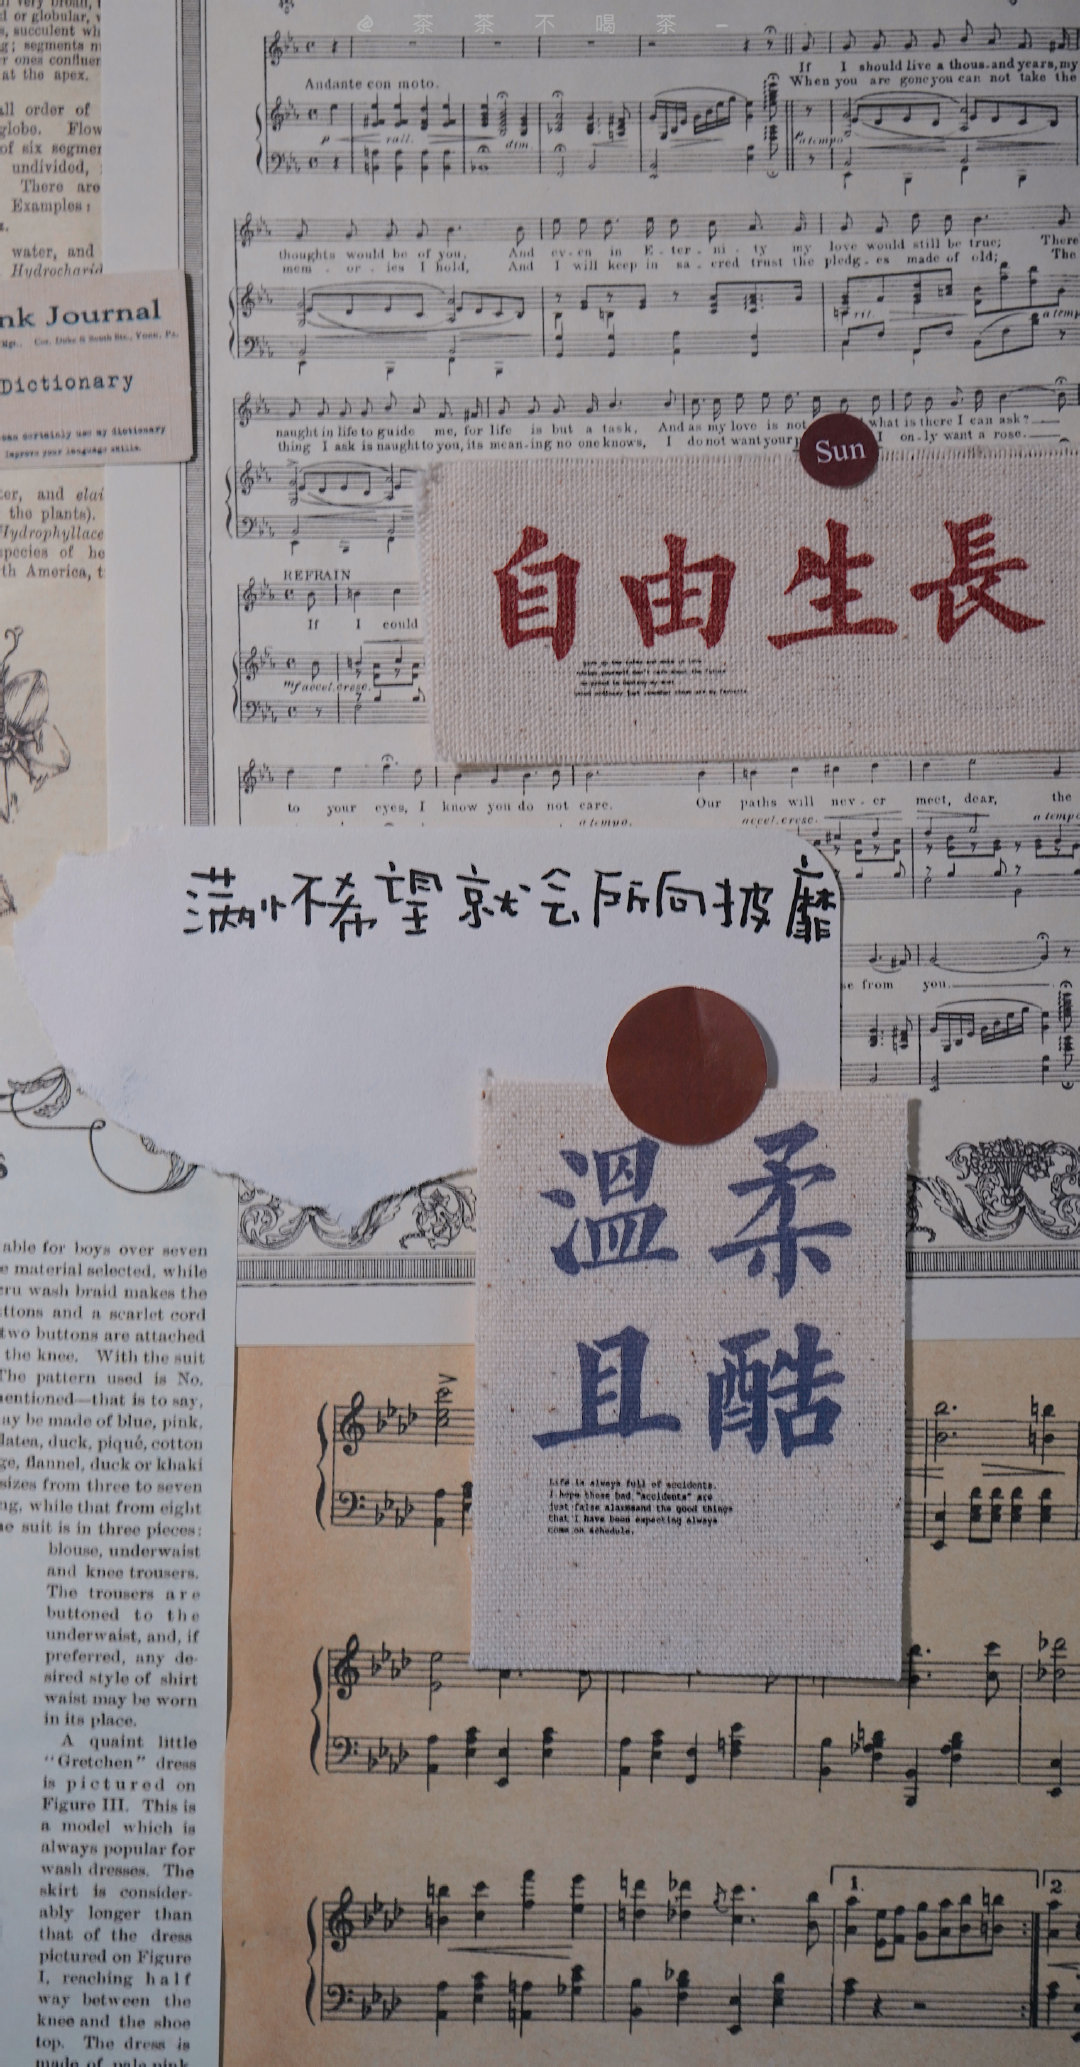 @茶茶不喝茶-
at the apex.
all order of
of six segmer
undivided,
There are
Examples:
water, and
Hydrocharid
nk Journal
Dictionary
can certainly use my dictionary
Improve your language skills.
and elai
the plants).
Hydrophyllace
species of he
th America, t
Andante con moto.
If I should live a thous-and years, my
When you are gone you can not take the
p rall. dim. a tempo
thoughts would be of you, And ev-en in E-ter-ni-ty my love would still be true; There
mem-or-ies I hold, And I will keep in sa-cred trust the pledg-es made of old; The
rit. a temp
naught in life to guide me, for life is but a task, And as my love is not what is there I can ask?
thing I ask is naught to you, its mean-ing no one knows, I do not want your I on-ly want a rose.
Sun
自由生長
REFRAIN
If I could
mf accel. cresc.
to your eyes, I know you do not care. Our paths will nev-er meet, dear, the
a tempo. accel. cresc. a tempo
满怀希望就会所向披靡
se from you.
溫柔
且酷
Life is always full of accidents.
I hope those bad "accidents" are
just false alarmsand the good things
that I have been expecting always
come on schedule.
able for boys over seven
e material selected, while
cru wash braid makes the
ttons and a scarlet cord
two buttons are attached
the knee. With the suit
The pattern used is No.
mentioned—that is to say,
ay be made of blue, pink,
latea, duck, piqué, cotton
ge, flannel, duck or khaki
sizes from three to seven
ng, while that from eight
he suit is in three pieces:
blouse, underwaist
and knee trousers.
The trousers are
buttoned to the
underwaist, and, if
preferred, any de-
sired style of shirt
waist may be worn
in its place.
A quaint little
"Gretchen" dress
is pictured on
Figure III. This is
a model which is
always popular for
wash dresses. The
skirt is consider-
ably longer than
that of the dress
pictured on Figure
I, reaching half
way between the
knee and the shoe
top. The dress is
made of pale pink
1.
2